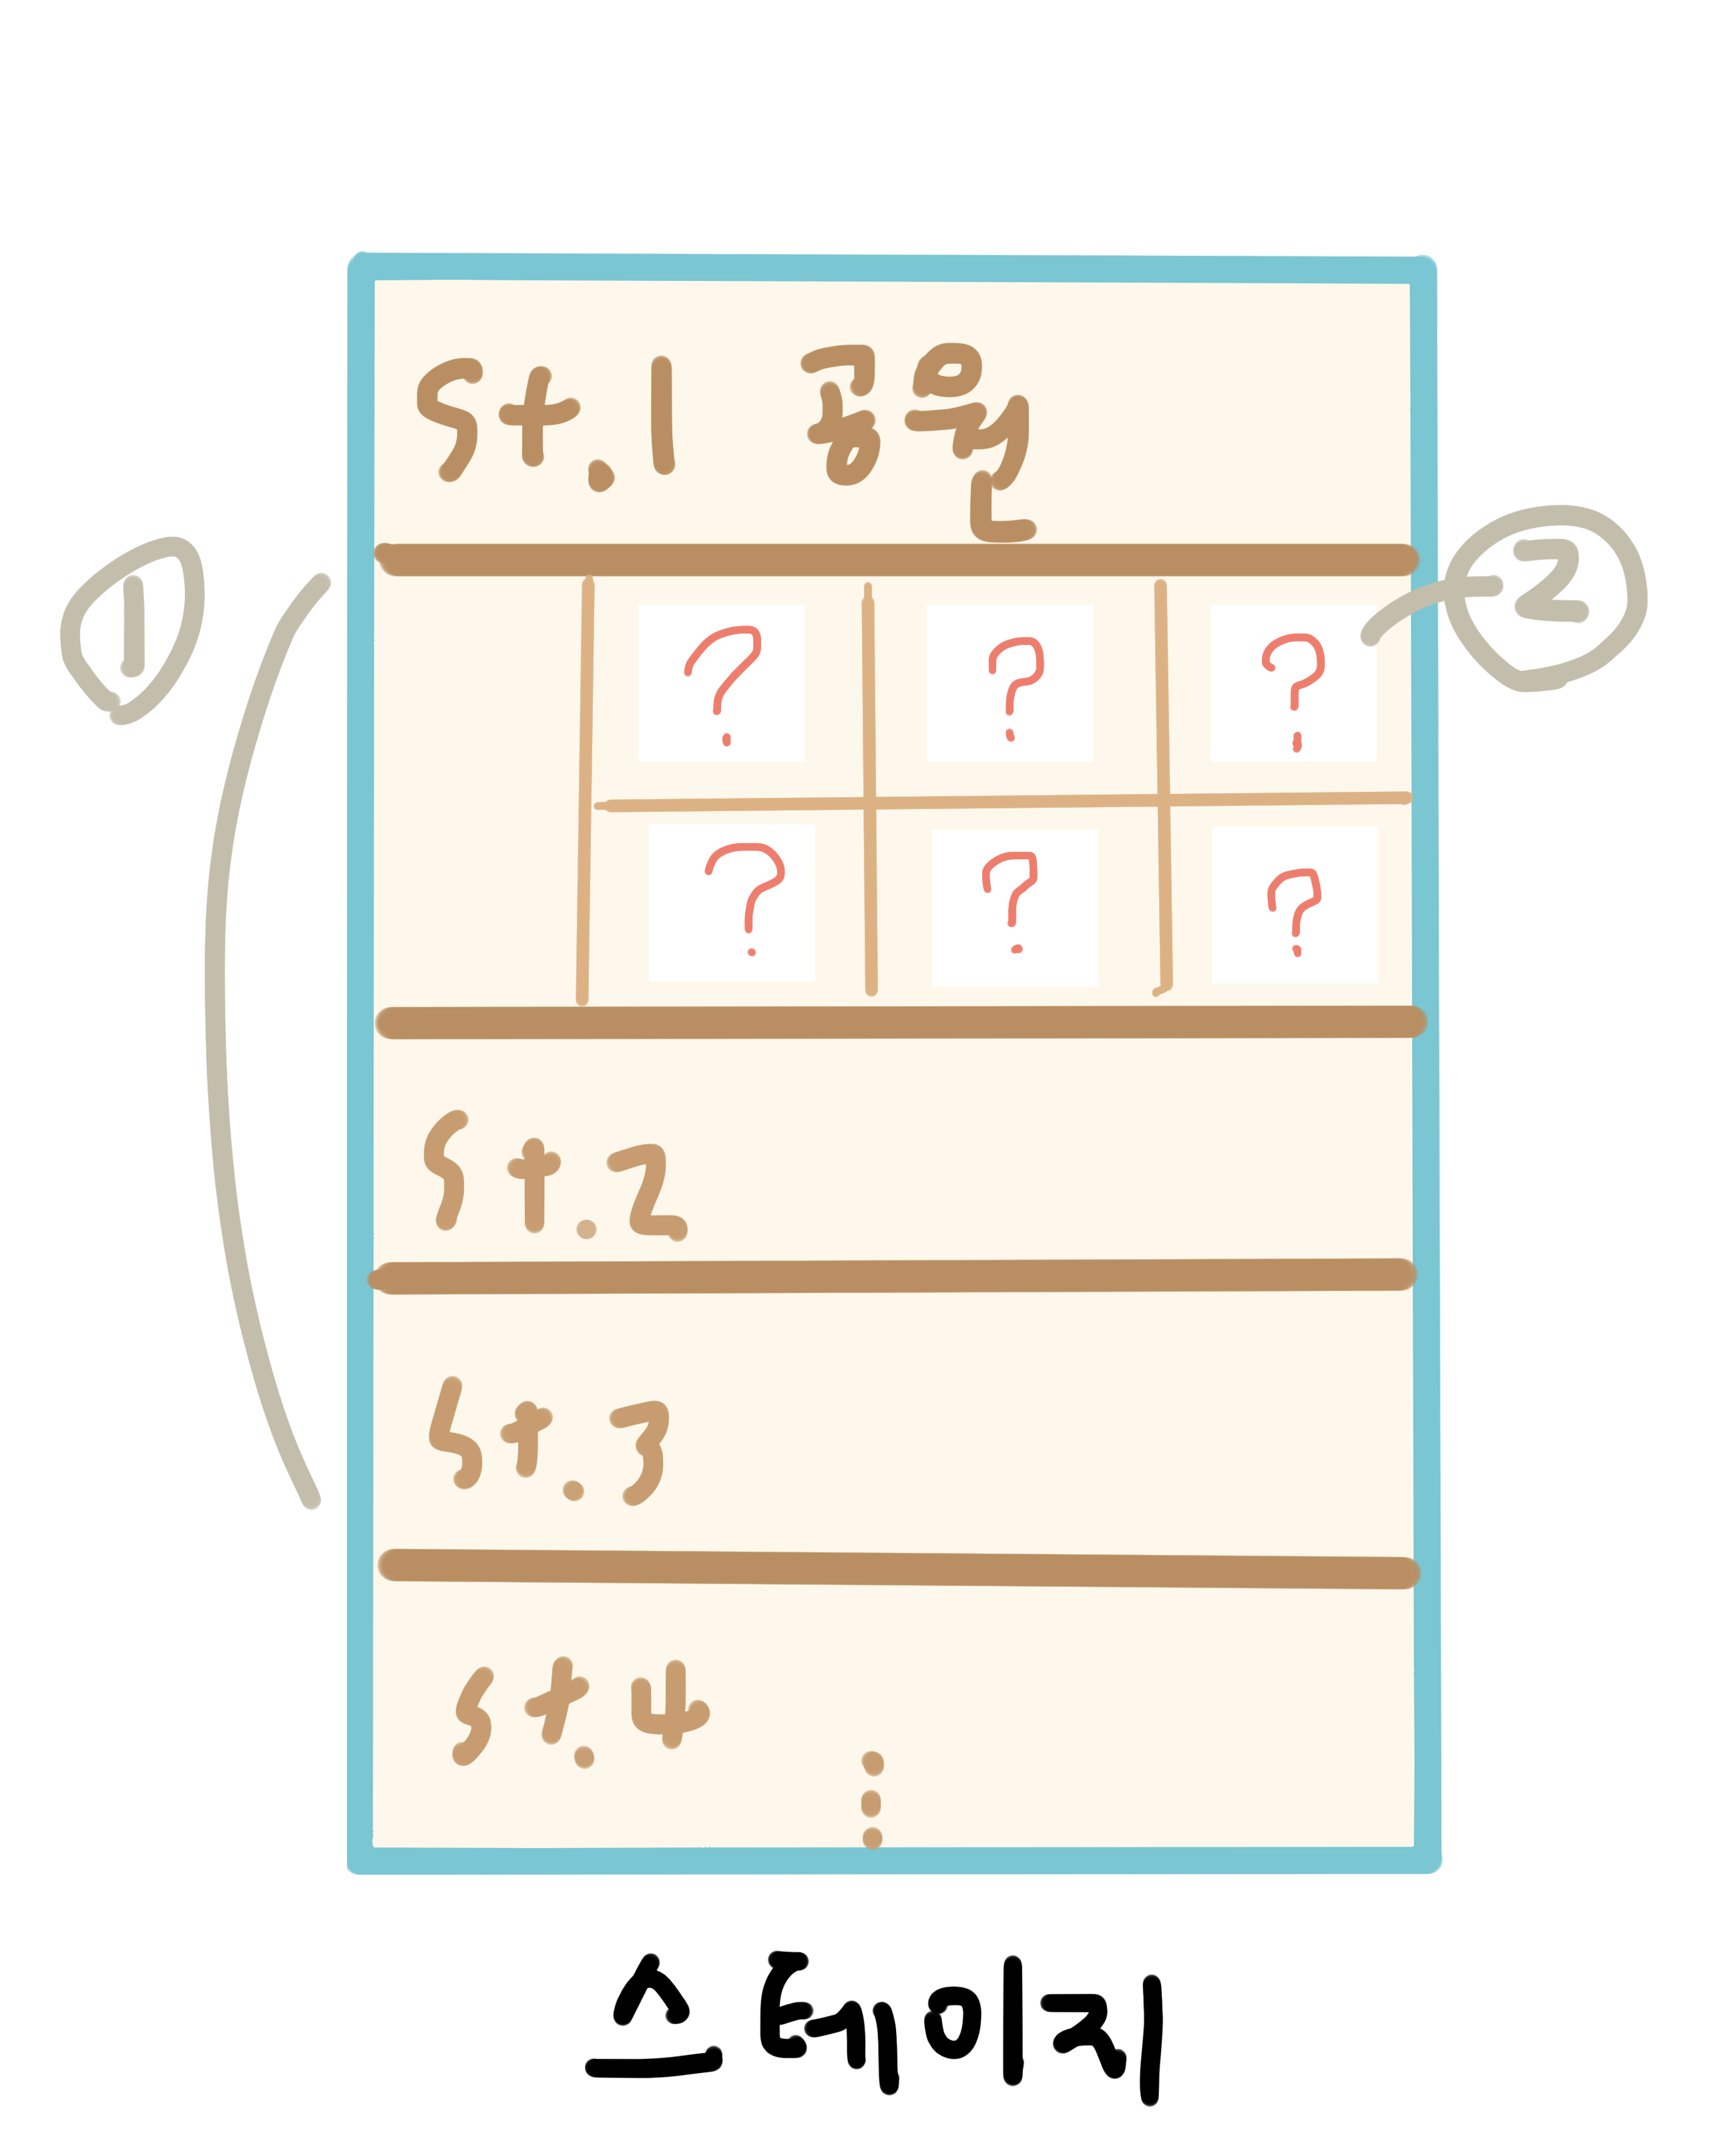 St.1 공원
①
②
? ? ?
? ? ?
St.2
St.3
St.4
스테이지